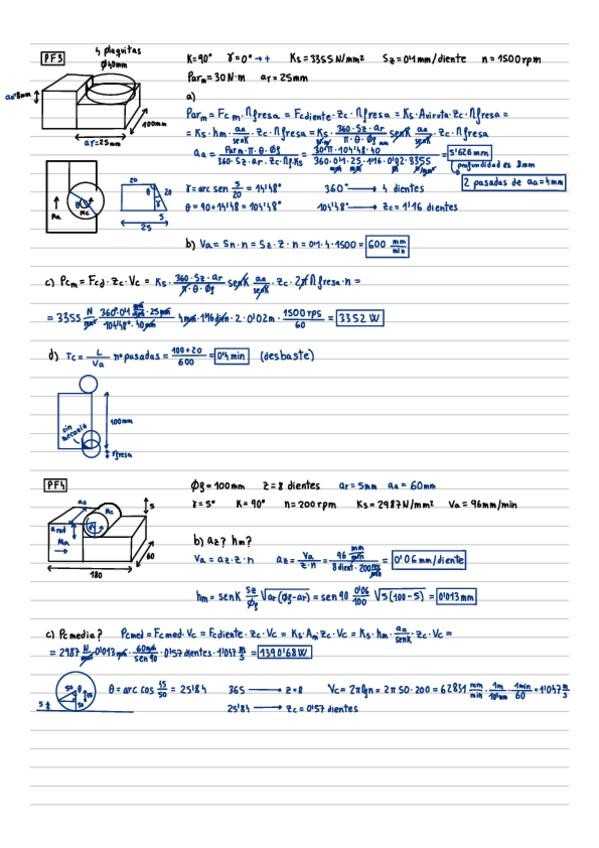 PF3
4 plaquitas
Ø40mm
aa=8mm
ar=25mm
100mm
K=90° γ=0° → + Ks=3355N/mm² Sz=0'1mm/diente n=1500rpm
Parm=30N·m ar=25mm
a)
Parm = Fcm·Rfresa = Fcdiente·Zc·Rfresa = Ks·Aviruta·Zc·Rfresa =
= Ks·hm·aa/senK·Zc·Rfresa = Ks·360·Sz·ar/π·θ·Øf senK aa/senK·Zc·Rfresa
aa = Parm·π·θ·Øf/360·Sz·ar·Zc·Rf·Ks = 30·π·104'48·40/360·0'1·25·1'16·0'02·3355 = 5'626mm
profundidad es 8mm
2 pasadas de aa=4mm
Ma
Mc
θ
20
20
5
25
γ = arc sen 5/20 = 14'48°
360° → 4 dientes
θ = 90+14'48 = 104'48°
104'48° → Zc=1'16 dientes
b) Va = Sn·n = Sz·Z·n = 0'1·4·1500 = 600 mm/min
c) Pcm = Fcd·Zc·Vc = Ks·360·Sz·ar/π·θ·Øf senK aa/senK Zc·2πRfresa·n =
= 3355 N/mm² 360°·0'1 mm/diente·25mm/104'48°·40mm 4mm·1'16dien·2·0'02m·1500rps/60 = 3352W
d) Tc = L/Va nº pasadas = 100+20/600 = 0'4min (desbaste)
100mm
sin
rfresa
PF4
Øf=100mm Z=8 dientes ar=5mm aa=60mm
γ=5° K=90° n=200rpm Ks=2987N/mm² Va=96mm/min
aa
Mc
5
Ma
60
180
b) az? hm?
Va = az·z·n az = Va/z·n = 96 mm/min/8dient·200rev/min = 0'06mm/diente
hm = senK Sz/Øf √ar(Øf-ar) = sen90 0'06/100 √5(100-5) = 0'013mm
c) Pcmedia? Pcmed = Fcmed·Vc = Fcdiente·Zc·Vc = Ks·Ai·Zc·Vc = Ks·hm·aa/senK·Zc·Vc =
= 2987 N/mm² 0'013mm·60mm/sen90·0'57dientes·1'047 m/s = 1390'68W
50
θ
5
θ = arc cos 45/50 = 25'84
365 → z=8
Vc = 2πRn = 2π50·200 = 62831 mm/min·1m/10³mm·1min/60 = 1'047 m/s
25'84 → Zc=0'57 dientes